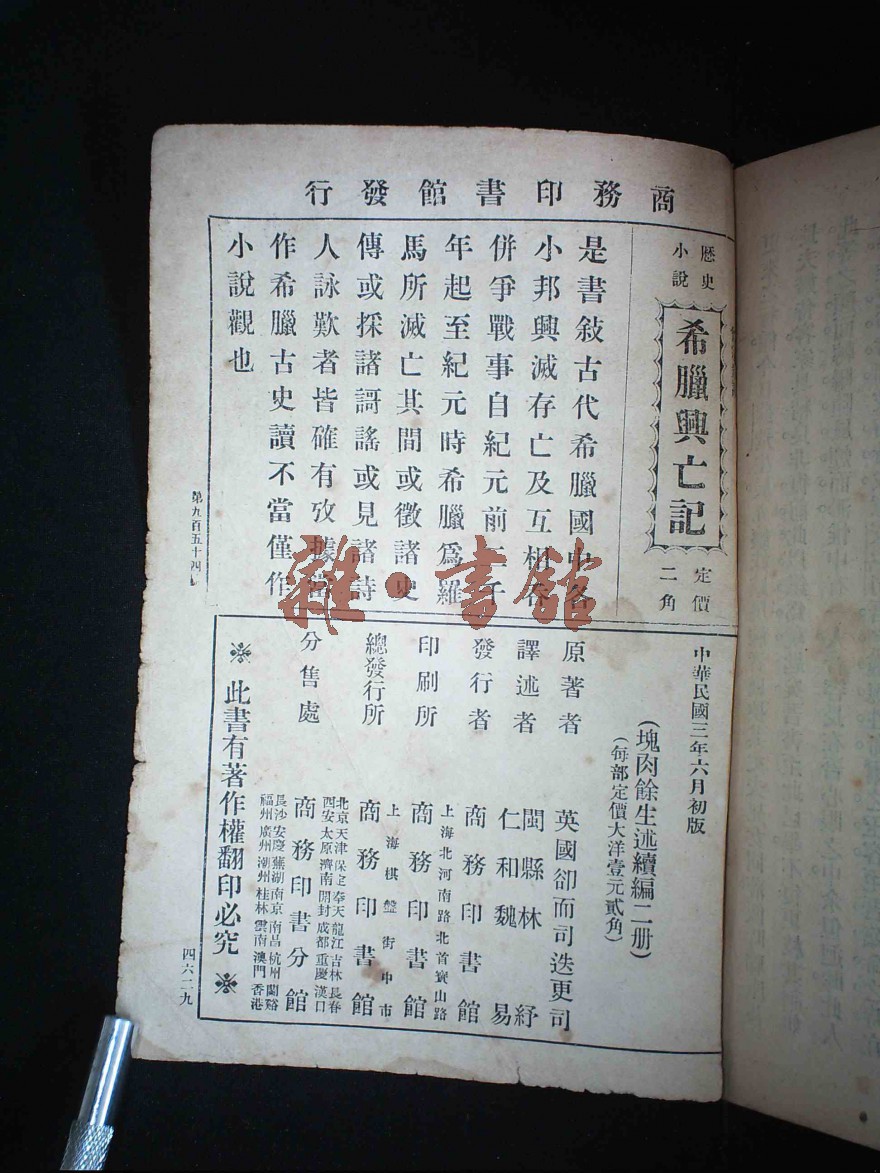 商務印書館發行
歷史
小說
希臘興亡記
定價
二角
是書敍古代希臘國中各
小邦興滅存亡及互相吞
併爭戰事自紀元前二千
年起至紀元時希臘爲羅
馬所滅亡其間或徵諸史
傳或採諸謌謠或見諸詩
人詠歎者皆確有攷據
作希臘古史讀不當僅作
小說觀也
第九百五十四
中華民國三年六月初版
(塊肉餘生述續編二册)
(每部定價大洋壹元貳角)
原著者 英國卻而司迭更司
譯述者 閩縣林紓
仁和魏易
發行者 商務印書館
上海北河南路北首寶山路
印刷所 商務印書館
上海棋盤街中市
總發行所 商務印書館
北京天津保定奉天龍江吉林長春
西安太原濟南開封成都重慶漢口
分售處 商務印書分館
長沙安慶蕪湖南京南昌杭州蘭谿
福州廣州潮州桂林雲南澳門香港
※此書有著作權翻印必究※
四六二九
雜·書館